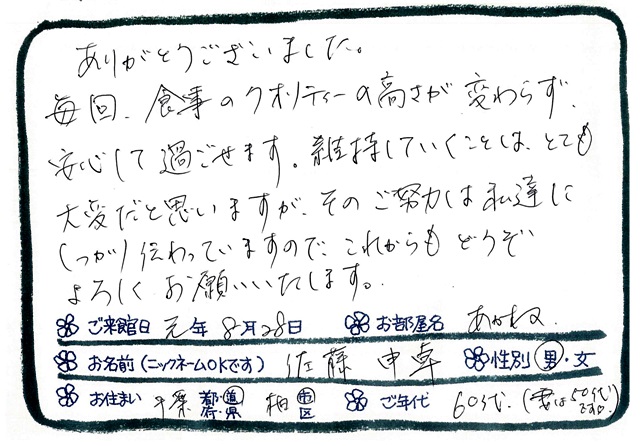 ありがとうございました。
毎回、食事のクオリティーの高さが変わらず、
安心して過ごせます。維持していくことは、とても
大変だと思いますが、そのご努力は私達に
しっかり伝わっていますので、これからもどうぞ
よろしくお願いいたします。
ご来館日 元年 8月28日 お部屋名 あかね
お名前(ニックネームOKです) 佐藤 申卓 性別 男・女
お住まい 千葉 都・道・府・県 柏 市・区 ご年代 60代。(妻は50代です。)